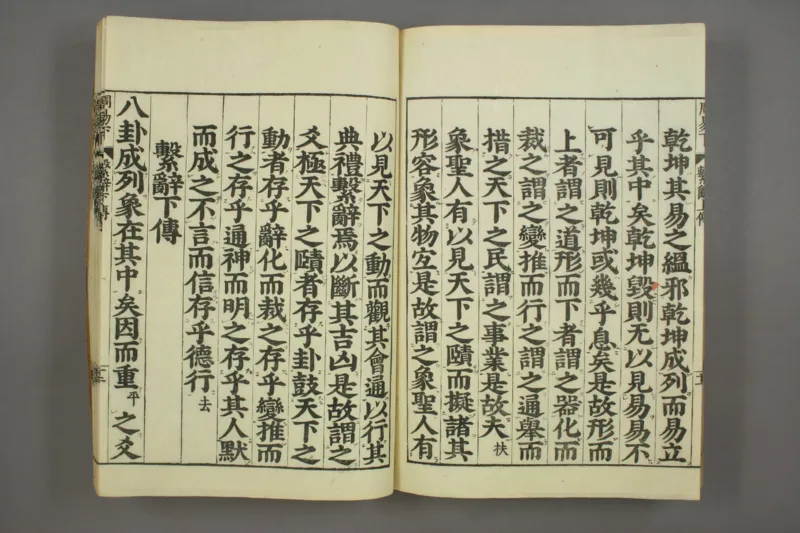 乾坤其易之縕邪乾坤成列而易立
乎其中矣乾坤毀則无以見易易不
可見則乾坤或幾乎息矣是故形而
上者謂之道形而下者謂之器化而
裁之謂之變推而行之謂之通舉而
措之天下之民謂之事業是故夫扶
象聖人有以見天下之賾而擬諸其
形容象其物宜是故謂之象聖人有
以見天下之動而觀其會通以行其
典禮繫辭焉以斷其吉凶是故謂之
爻極天下之賾者存乎卦鼓天下之
動者存乎辭化而裁之存乎變推而
行之存乎通神而明之存乎其人默
而成之不言而信存乎德行去
繫辭下傳
八卦成列象在其中矣因而重平之爻